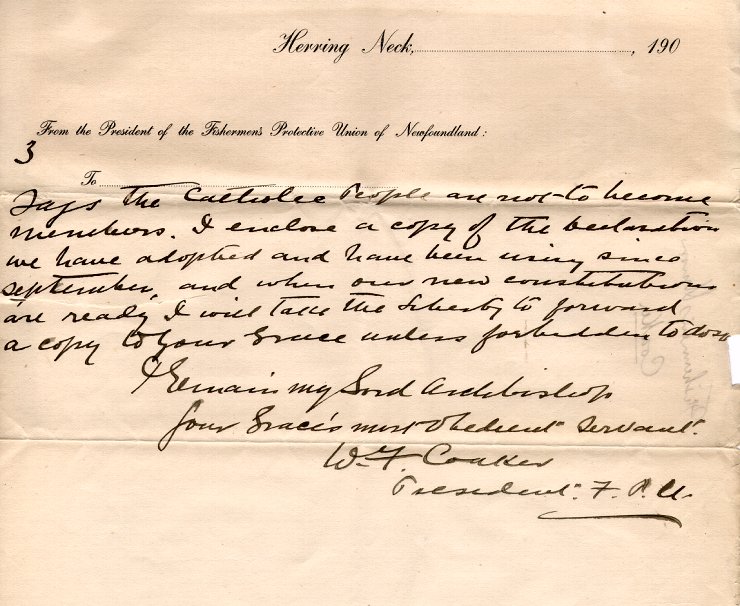 Herring Neck, 190
From the President of the Fishermen's Protective Union of Newfoundland:
3
To
says the Catholic People are not to become
members. I enclose a copy of the declaration
we have adopted and have been using since
september, and when our new constitutions
are ready I will take the liberty to forward
a copy to your Grace unless forbidden to do so
I Remain my Lord Archbishop
Your Grace's most Obedient Servant.
W. F. Coaker
President. F. P. U.